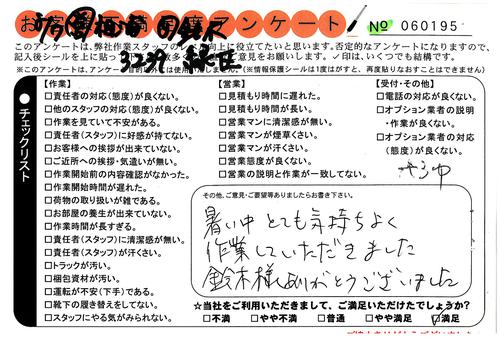 お客様満足度アンケート
No 060195
このアンケートは、弊社作業スタッフのレベル向上に役立てたいと思います。否定的なアンケートになりますので、
記入後シールを上に貼っ
意見をお願いします。✓印は、いくつでも結構です。
(※情報保護シールは1度はがすと、再度貼りなおすことはできません)
チェックリスト
【作業】
□責任者の対応(態度)が良くない。
□他のスタッフの対応(態度)が良くない。
□作業を見ていて不安がある。
□責任者(スタッフ)に好感が持てない。
□お客様への挨拶が出来ていない。
□ご近所への挨拶・気遣いが無い。
□作業開始前の内容確認がなかった。
□作業開始時間が遅れた。
□荷物の取り扱いが雑である。
□お部屋の養生が出来ていない。
□作業時間が長すぎる。
□責任者(スタッフ)に清潔感が無い。
□責任者(スタッフ)が汗くさい。
□トラックが汚い。
□梱包資材が汚い。
□運転が不安(下手)である。
□靴下の履き替えをしてない。
□スタッフにやる気がみられない。
【営業】
□見積もり時間に遅れた。
□見積もり時間が長い。
□営業マンに清潔感が無い。
□営業マンが煙草くさい。
□営業マンが汗くさい。
□営業態度が良くない。
□営業の説明と作業が一致してない。
【受付・その他】
□電話の対応が良くない。
□オプション業者の説明
・作業が良くない。
□オプション業者の対応
(態度)が良くない。
その他、ご意見・ご要望等ありましたらお書き下さい。
暑い中 とても気持ちよく
作業していただきました
鈴木様ありがとうございました
☆当社をご利用いただきまして、ご満足いただけたでしょうか?
□不満 □やや不満 □普通 □やや満足 ☑満足